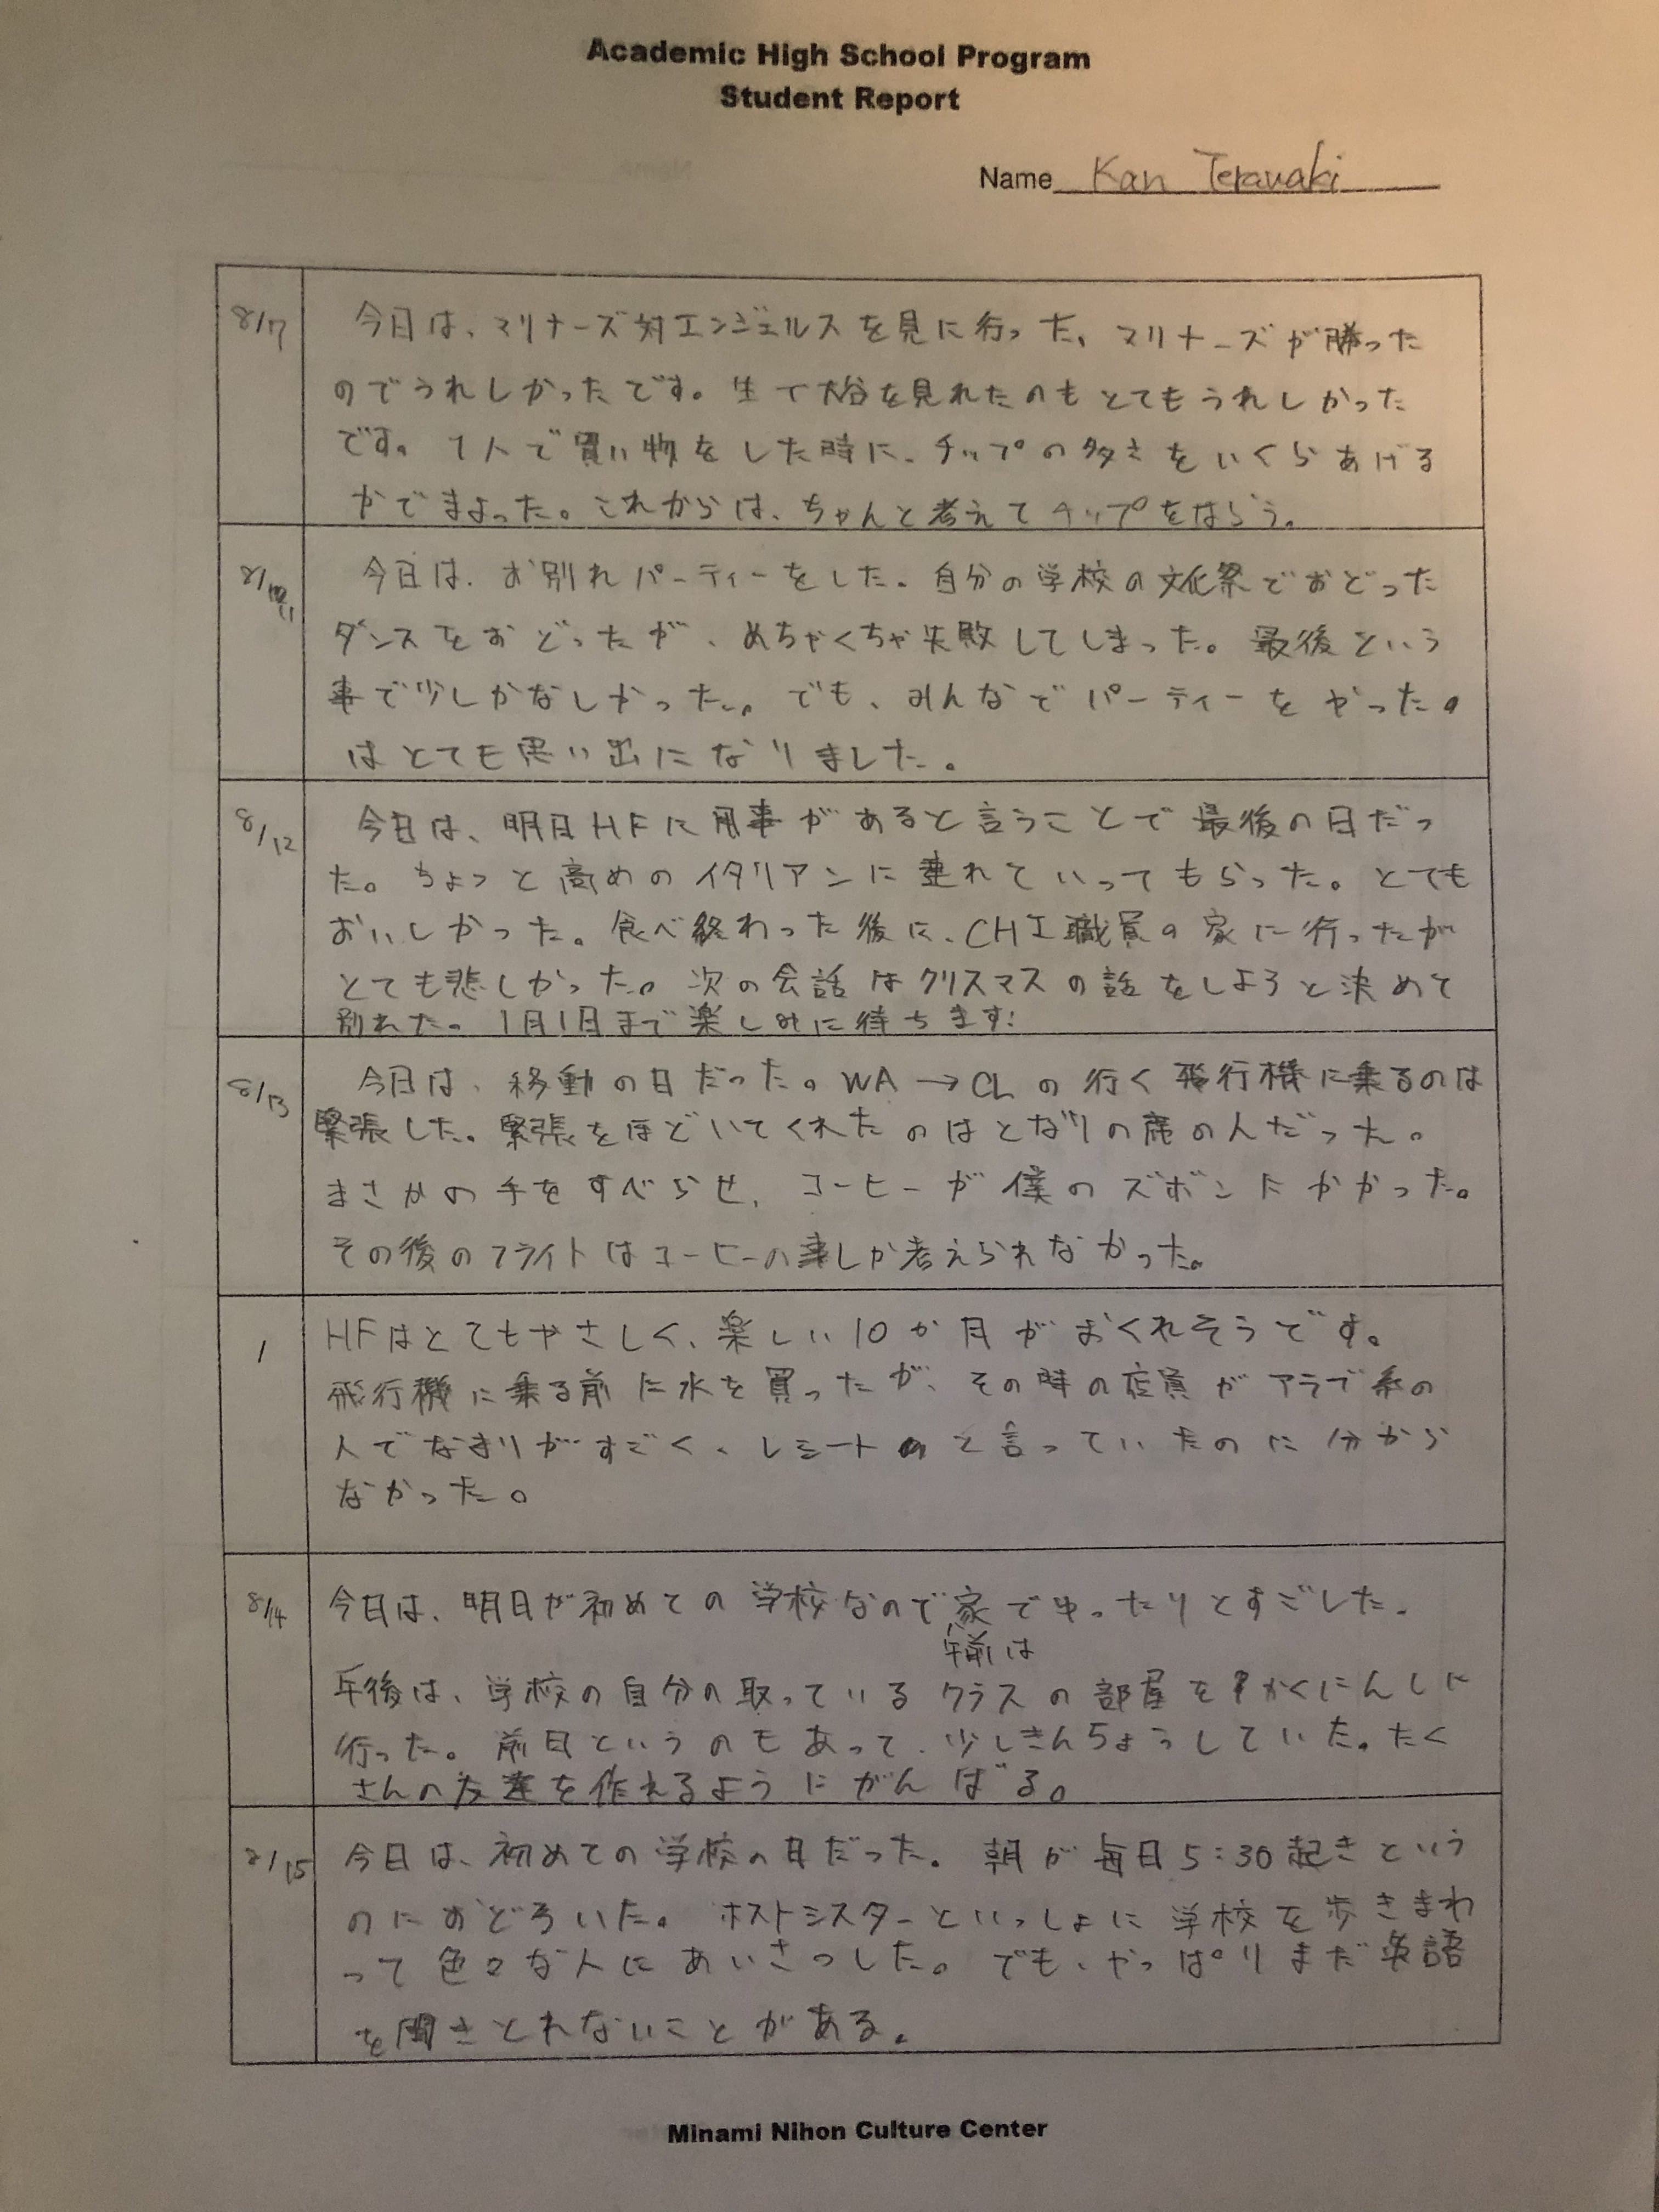 Academic High School Program
Student Report
Name Kan Terawaki
8/7
今日は、マリナーズ対エンジェルスを見に行った。マリナーズが勝った
のでうれしかったです。生で大谷を見れたのもとてもうれしかった
です。1人で買い物をした時に、チップの多さをいくらあげる
かでまよった。これからは、ちゃんと考えてチップをはらう。
8/11
今日は、お別れパーティーをした。自分の学校の文化祭でおどった
ダンスをおどったが、めちゃくちゃ失敗してしまった。最後という
事で少しかなしかった。でも、みんなでパーティーをやったの
はとても思い出になりました。
8/12
今日は、明日HFに用事があると言うことで最後の日だっ
た。ちょっと高めのイタリアンに連れていってもらった。とても
おいしかった。食べ終わった後に、CHI職員の家に行ったが
とても悲しかった。次の会話はクリスマスの話をしようと決めて
別れた。1月1日まで楽しみに待ちます!
8/13
今日は、移動の日だった。WA→CLの行く飛行機に乗るのは
緊張した。緊張をほどいてくれたのはとなりの席の人だった。
まさかの手をすべらせ、コーヒーが僕のズボンにかかった。
その後のフライトはコーヒーの事しか考えられなかった。
/
HFはとてもやさしく、楽しい10か月がおくれそうです。
飛行機に乗る前に水を買ったが、その時の店員がアラブ系の
人でなまりがすごく、レシートと言っていたのに分から
なかった。
8/14
今日は、明日が初めての学校なので家でゆったりとすごした。
午前は
午後は、学校の自分の取っているクラスの部屋をかくにんしに
行った。前日というのもあって、少しきんちょうしていた。たく
さんの友達を作れるようにがんばる。
8/15
今日は、初めての学校の日だった。朝が毎日5:30起きという
のにおどろいた。ホストシスターといっしょに学校を歩きまわ
って色々な人にあいさつした。でも、やっぱりまだ英語
を聞きとれないことがある。
Minami Nihon Culture Center